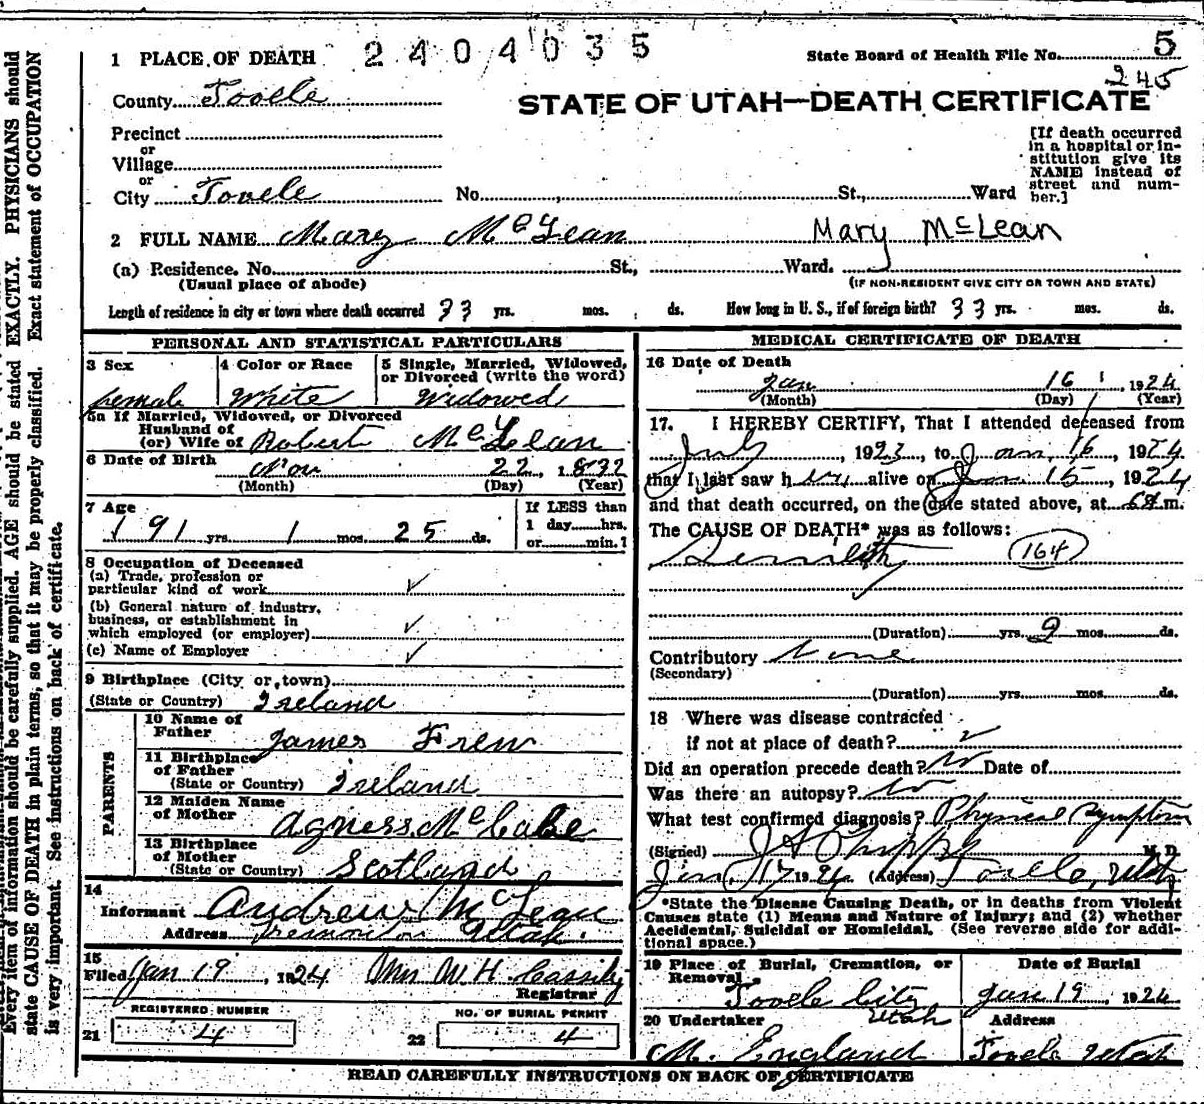 1 PLACE OF DEATH 2404035 State Board of Health File No. 5
245
County Tooele
STATE OF UTAH—DEATH CERTIFICATE
Precinct
or
Village
or
City Tooele No. St., Ward
[If death occurred
in a hospital or in-
stitution give its
NAME instead of
street and num-
ber.]
2 FULL NAME Mary McLean Mary McLean
(a) Residence. No. St., Ward.
(Usual place of abode) (IF NON-RESIDENT GIVE CITY OR TOWN AND STATE)
Length of residence in city or town where death occurred 33 yrs. mos. ds. How long in U. S., if of foreign birth? 33 yrs. mos. ds.
PERSONAL AND STATISTICAL PARTICULARS
3 Sex 4 Color or Race 5 Single, Married, Widowed,
or Divorced (write the word)
female White Widowed
5a If Married, Widowed, or Divorced
Husband of
(or) Wife of Robert McLean
6 Date of Birth Nov 22, 1832
(Month) (Day) (Year)
7 Age If LESS than
91 yrs. 1 mos. 25 ds. 1 day hrs.
or min.?
8 Occupation of Deceased
(a) Trade, profession or
particular kind of work ✓
(b) General nature of industry,
business, or establishment in
which employed (or employer) ✓
(c) Name of Employer ✓
9 Birthplace (City or town)
(State or Country) Ireland
PARENTS
10 Name of
Father James Frew
11 Birthplace
of Father
(State or Country) Ireland
12 Maiden Name
of Mother Agness McCabe
13 Birthplace
of Mother
(State or Country) Scotland
14
Informant Andrew McLean
Address Tremonton Utah.
15
Filed Jan 19, 1924 Mrs M H Cassity
Registrar
REGISTERED NUMBER NO. OF BURIAL PERMIT
21 4 22 4
MEDICAL CERTIFICATE OF DEATH
16 Date of Death
Jan 16 1924
(Month) (Day) (Year)
17. I HEREBY CERTIFY, That I attended deceased from
July, 1923, to Jan, 16, 1924
that I last saw her alive on Jan 15, 1924
and that death occurred, on the date stated above, at m.
The CAUSE OF DEATH* was as follows:
Senility 164
(Duration) yrs. 9 mos. ds.
Contributory None
(Secondary)
(Duration) yrs. mos. ds.
18 Where was disease contracted
if not at place of death? ✓
Did an operation precede death? No Date of
Was there an autopsy? No
What test confirmed diagnosis? Physical Symptom
(Signed) J A Phipps M. D.
Jan 17 1924 (Address) Tooele, Utah
*State the Disease Causing Death, or in deaths from Violent
Causes state (1) Means and Nature of Injury; and (2) whether
Accidental, Suicidal or Homicidal. (See reverse side for addi-
tional space.)
19 Place of Burial, Cremation, or Date of Burial
Removal
Tooele City Jan 19, 1924
Utah
20 Undertaker Address
M. England Tooele Utah
READ CAREFULLY INSTRUCTIONS ON BACK OF CERTIFICATE
Every item of information should be carefully supplied. AGE should be stated EXACTLY. PHYSICIANS should
state CAUSE OF DEATH in plain terms, so that it may be properly classified. Exact statement of OCCUPATION
is very important. See instructions on back of certificate.